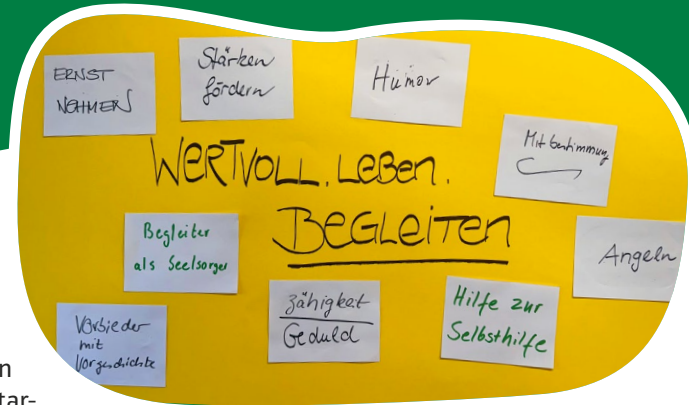 ERNST
NEHMEN
Stärken
fördern
Humor
Mitbestimmung
WERTVOLL. LEBEN.
BEGLEITEN
Begleiter
als Seelsorger
Angeln
Vorbieder
mit
Vorgeschichte
Zähigkeit
Geduld
Hilfe zur
Selbsthilfe
n
tar-